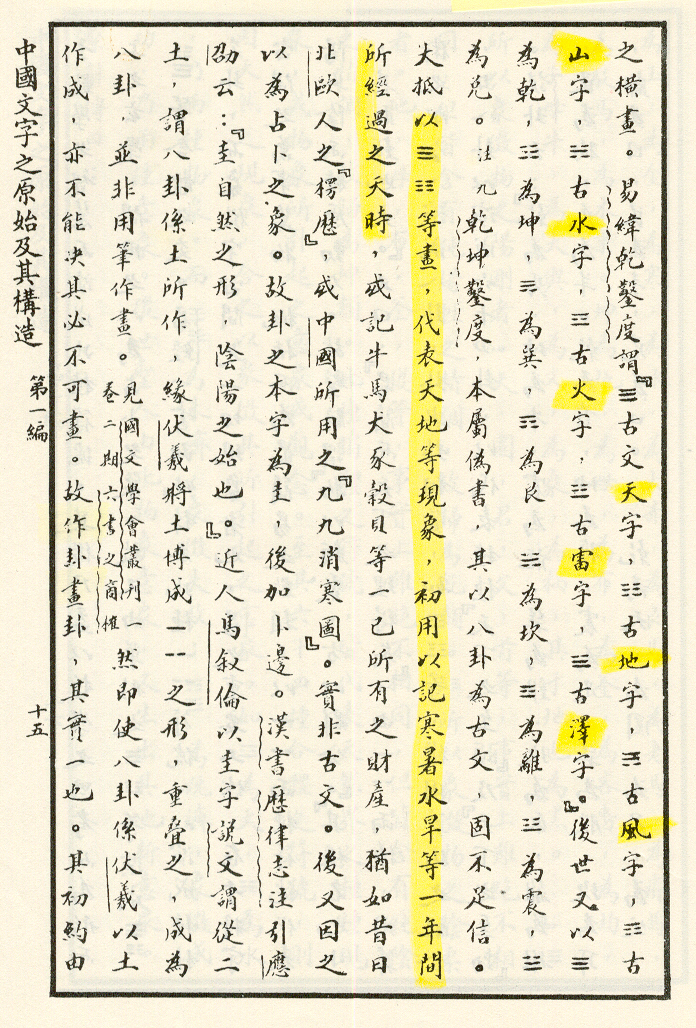 之橫畫。易緯乾鑿度謂『☰古文天字,☷古地字,☴古風字,☶古
山字,☵古水字,☲古火字,☳古雷字,☱古澤字。』後世又以☰
為乾,☷為坤,☴為巽,☶為艮,☵為坎,☲為離,☳為震,☱
為兌。註九 乾坤鑿度 本屬偽書,其以八卦為古文,固不足信。
大抵以☰☷等畫,代表天地等現象,初用以記寒暑水旱等一年間
所經過之天時,或記牛馬犬豕穀貝等一己所有之財產,猶如昔日
北歐人之『楞歷』或中國所用之『九九消寒圖』。實非古文。後又因之
以為占卜之象。故卦之本字為圭,後加卜邊。漢書歷律志注引應
劭云:『圭自然之形,陰陽之始也。』近人馬叙倫以圭字說文謂從一
土,謂八卦係土所作,緣伏羲將土塼成⚊⚋之形,重疊之,成為
八卦,並非用筆作畫。見國文學會叢刊一卷二期六書之商榷 然即使八卦係伏羲以土
作成 亦不能決其必不可畫。故作卦畫卦,其實一也。其初約由
中國文字之原始及其構造 第一編 十五